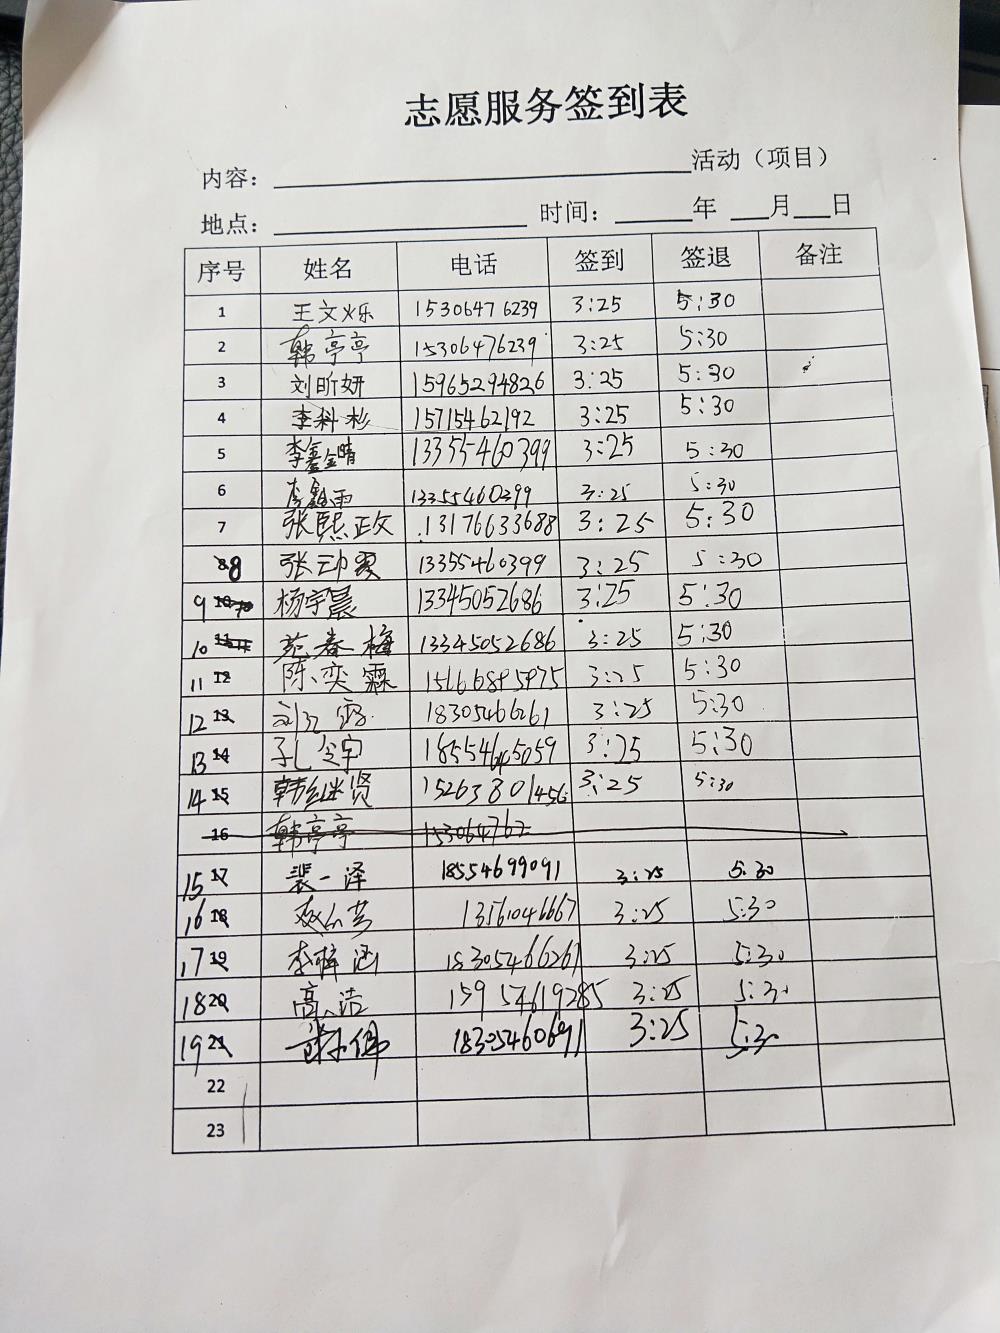 志愿服务签到表
内容：活动（项目）
地点： 时间： 年 月 日
序号 姓名 电话 签到 签退 备注
1 王文烁 15306476239 3:25 5:30
2 韩亭亭 15306476239 3:25 5:30
3 刘昕妍 15965294826 3:25 5:30
4 李科彬 15715462192 3:25 5:30
5 李鑫晴 13355460399 3:25 5:30
6 李鑫雨 13355460399 3:25 5:30
7 张熙政 13176633688 3:25 5:30
8 张 霞 13355460399 3:25 5:30
9 杨宇晨 13345052686 3:25 5:30
10 范春梅 13345052686 3:25 5:30
11 12 陈奕霖 15166895975 3:25 5:30
12 13 刘 露 18305466261 3:25 5:30
13 14 孔令宇 18554645059 3:25 5:30
14 15 韩继贤 15263801456 3:25 5:30
16 韩亭亭 153064762
15 17 裴一泽 18554699091 3:25 5:30
16 18 13561046667 3:25 5:30
17 19 李梓涵 18305466261 3:25 5:30
18 20 高洁 15954619285 3:25 5:30
19 21 18305460691 3:25 5:30
22
23